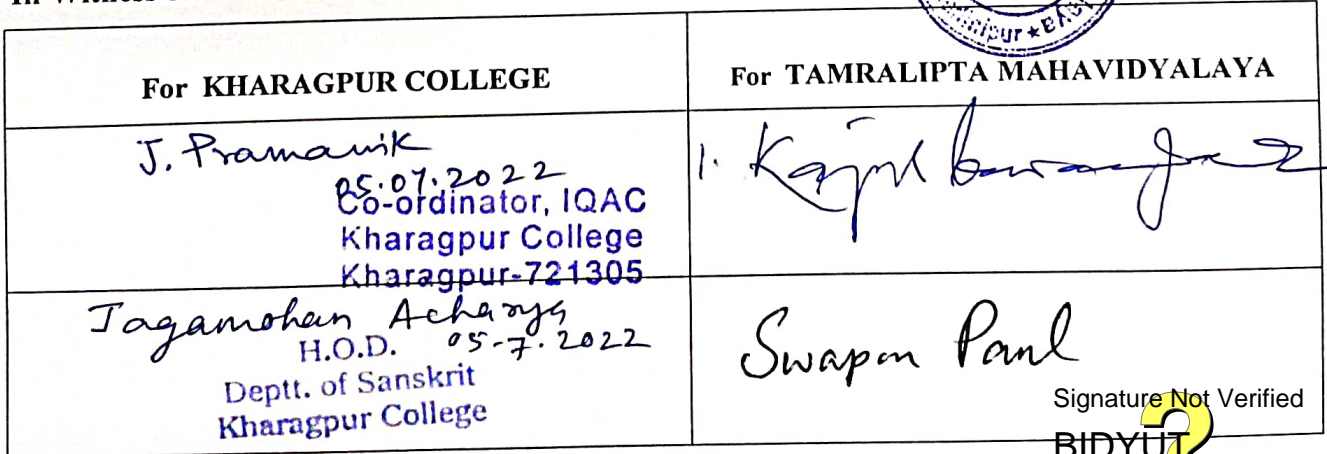 For KHARAGPUR COLLEGE
For TAMRALIPTA MAHAVIDYALAYA
J. Pramanik
05.07.2022
Co-ordinator, IQAC
Kharagpur College
Kharagpur-721305
1. Kajal
Jagamohan Acharya
H.O.D. 05-7.2022
Deptt. of Sanskrit
Kharagpur College
Swapan Paul
Signature Not Verified
BIDYUT